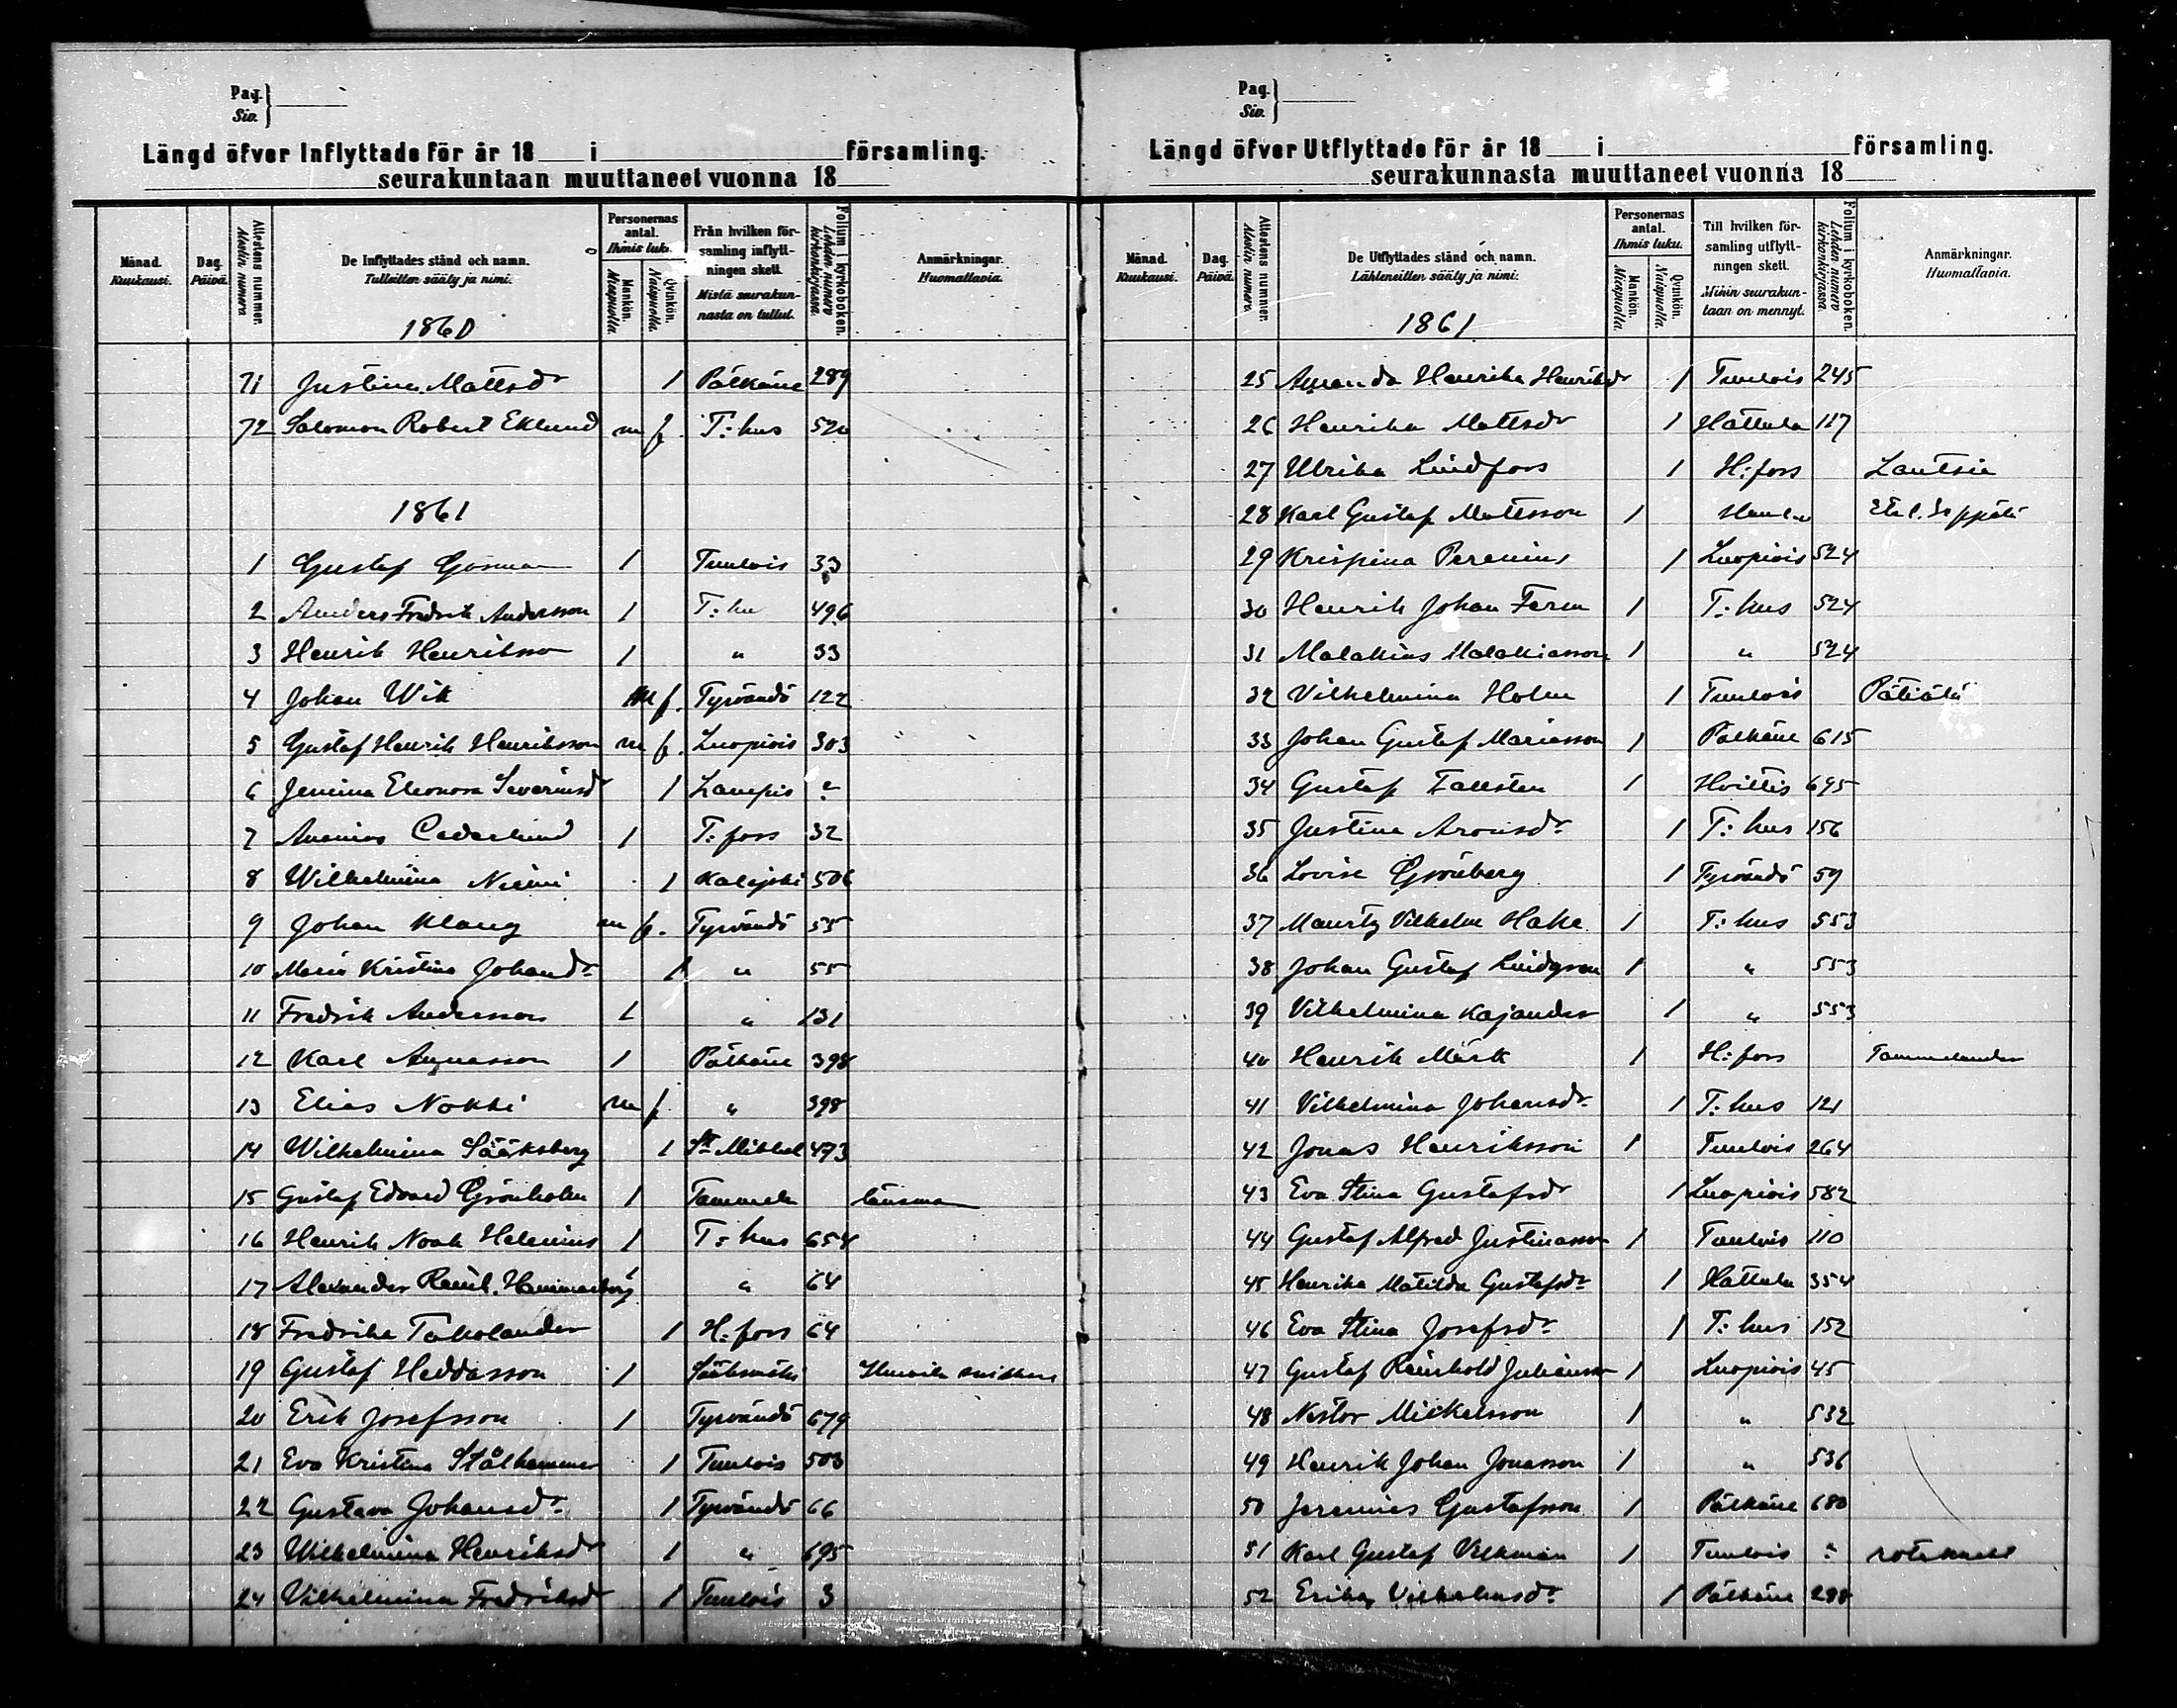 Pag.
Siv.
Längd öfver Inflyttade för år 18 i församling.
seurakuntaan muuttaneet vuonna 18
Månad. Kuukausi.
Dag. Päivä.
Attestens nummer. Alestin numero
De Inflyttades stånd och namn.
Tulleitten sääty ja nimi.
Personernas antal.
Ihmis luku.
Mankön. Miespuolia.
Qvinkön. Naispuolia.
Från hvilken församling inflyttningen skett.
Mistä seurakunnasta on tullut.
Folium i kyrkoboken. Lehden numero kirkonkirjassa.
Anmärkningar.
Huomattavia.
1860
71 Justina Mattsdr 1 Pälkäne 289
72 Salomon Robert Eklund m f. T:hus 520
1861
1 Gustaf 1 Tuulois 33
2 Anders Fredrik Andersson 1 496
3 Henrik Henriksson 1 " 33
4 Johan Wik m f. Tyrvändö 122
5 Gustaf Henrik Henriksson m f. Luopiois 303
6 Jemina Eleonora Severinsdr 1 Lampis
7 Ananias Cederlund 1 T:fors 32
8 Wilhelmina Niemi 1 506
9 Johan Klang m f. Tyrvändö 55
10 Maria Kristina Johansdr 1 " 55
11 Fredrik Andersson 1 " 131
12 Karl Annasson 1 Pälkäne 398
13 Elias Nokki m f. " 398
14 Wilhelmina Sääksberg 1 St Mikkel 473
15 Gustaf Edvard Grönholm 1 Tammela länsman
16 Henrik Noak Helenius 1 T:hus 654
17 Alexander Reinh. Hammarberg 1 " 64
18 Fredrika Takolander 1 H:fors 64
19 Gustaf Heddasson 1 Sääksmäki
20 Erik Josefsson 1 Tyrvändö 679
21 Eva Kristina Stålhammar 1 Tuulois 503
22 Gustava Johansdr 1 Tyrvändö 66
23 Wilhelmina Henriksdr 1 " 695
24 Vilhelmina Fredriksdr 1 Tuulois 3
Pag.
Siv.
Längd öfver Utflyttade för år 18 i församling.
seurakunnasta muuttaneet vuonna 18
Månad. Kuukausi.
Dag. Päivä.
Attestens nummer. Alestin numero.
De Utflyttades stånd och namn.
Lähteneitten sääty ja nimi.
Personernas antal.
Ihmis luku.
Mankön. Miespuolia.
Qvinkön. Naispuolia.
Till hvilken församling utflyttningen skett.
Mihin seurakuntaan on mennyt.
Folium i kyrkoboken. Lehden numero kirkonkirjassa.
Anmärkningar.
Huomattavia.
1861
25 Amanda Henrika Henriksdr 1 Tuulois 245
26 Henrika Mattsdr 1 Hattula 117
27 Ulrika Lindfors 1 H:fors Lautsia
28 Karl Gustaf Mattsson 1
29 Krispina Perenius 1 Luopiois 524
30 Henrik Johan Ferm 1 T:hus 524
31 Malakias Malakiasson 1 " 524
32 Vilhelmina Holm 1 Tuulois
33 Johan Gustaf Mariasson 1 Pälkäne 615
34 Gustaf Fallsten 1 Hvittis 695
35 Justina Aronsdr 1 T:hus 156
36 Lovisa Grönberg 1 Tyrvändö 59
37 Mauritz Vilhelm Hake 1 T:hus 553
38 Johan Gustaf Lindgren 1 " 553
39 Vilhelmina Kajander 1 " 553
40 Henrik Märk 1 H:fors Tammelander
41 Vilhelmina Johansdr 1 T:hus 121
42 Jonas Henriksson 1 Tuulois 264
43 Eva Stina Gustafsdr 1 Luopiois 582
44 Gustaf Alfred Justinasson 1 Tuulois 110
45 Henrika Matilda Gustafsdr 1 Hattula 354
46 Eva Stina Josefsdr 1 T:hus 152
47 Gustaf Reinhold Julianasson 1 Luopiois 45
48 Nestor Mickelsson 1 " 532
49 Henrik Johan Jonasson 1 " 536
50 Jeremias Gustafsson 1 Pälkäne 680
51 Karl Gustaf Vikman 1 Tuulois
52 Erika Vilhelmsdr 1 Pälkäne 288